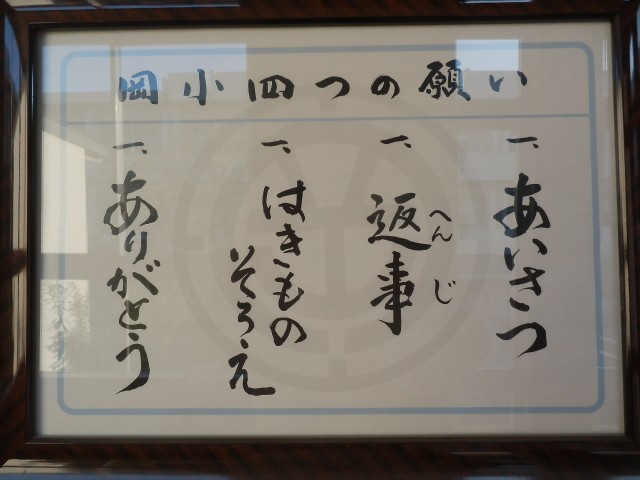 岡小四つの願い
一、あいさつ
一、返事
へんじ
一、はきもの
そろえ
一、ありがとう